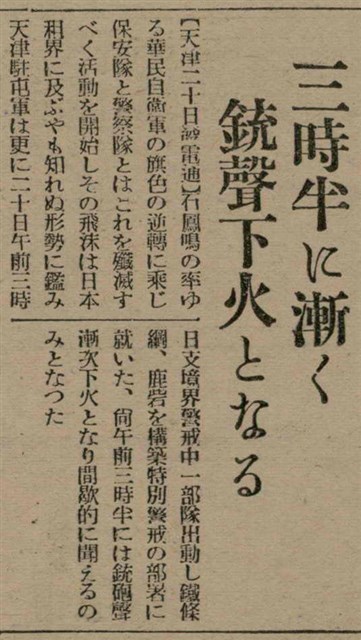 三時半に漸く
銃聲下火となる
【天津二十日發電通】石鳳鳴の率ゆ
る華民自衛軍の旗色の逆轉に乘じ
保安隊と警察隊とはこれを殲滅す
べく活動を開始しその飛沫は日本
租界に及ぶやも知れぬ形勢に鑑み
天津駐屯軍は更に二十日午前三時
日支境界警戒中一部隊出動し鐵條
網、鹿砦を構築特別警戒の部署に
就いた、尚午前三時半には銃砲聲
漸次下火となり間歇的に聞えるの
みとなつた